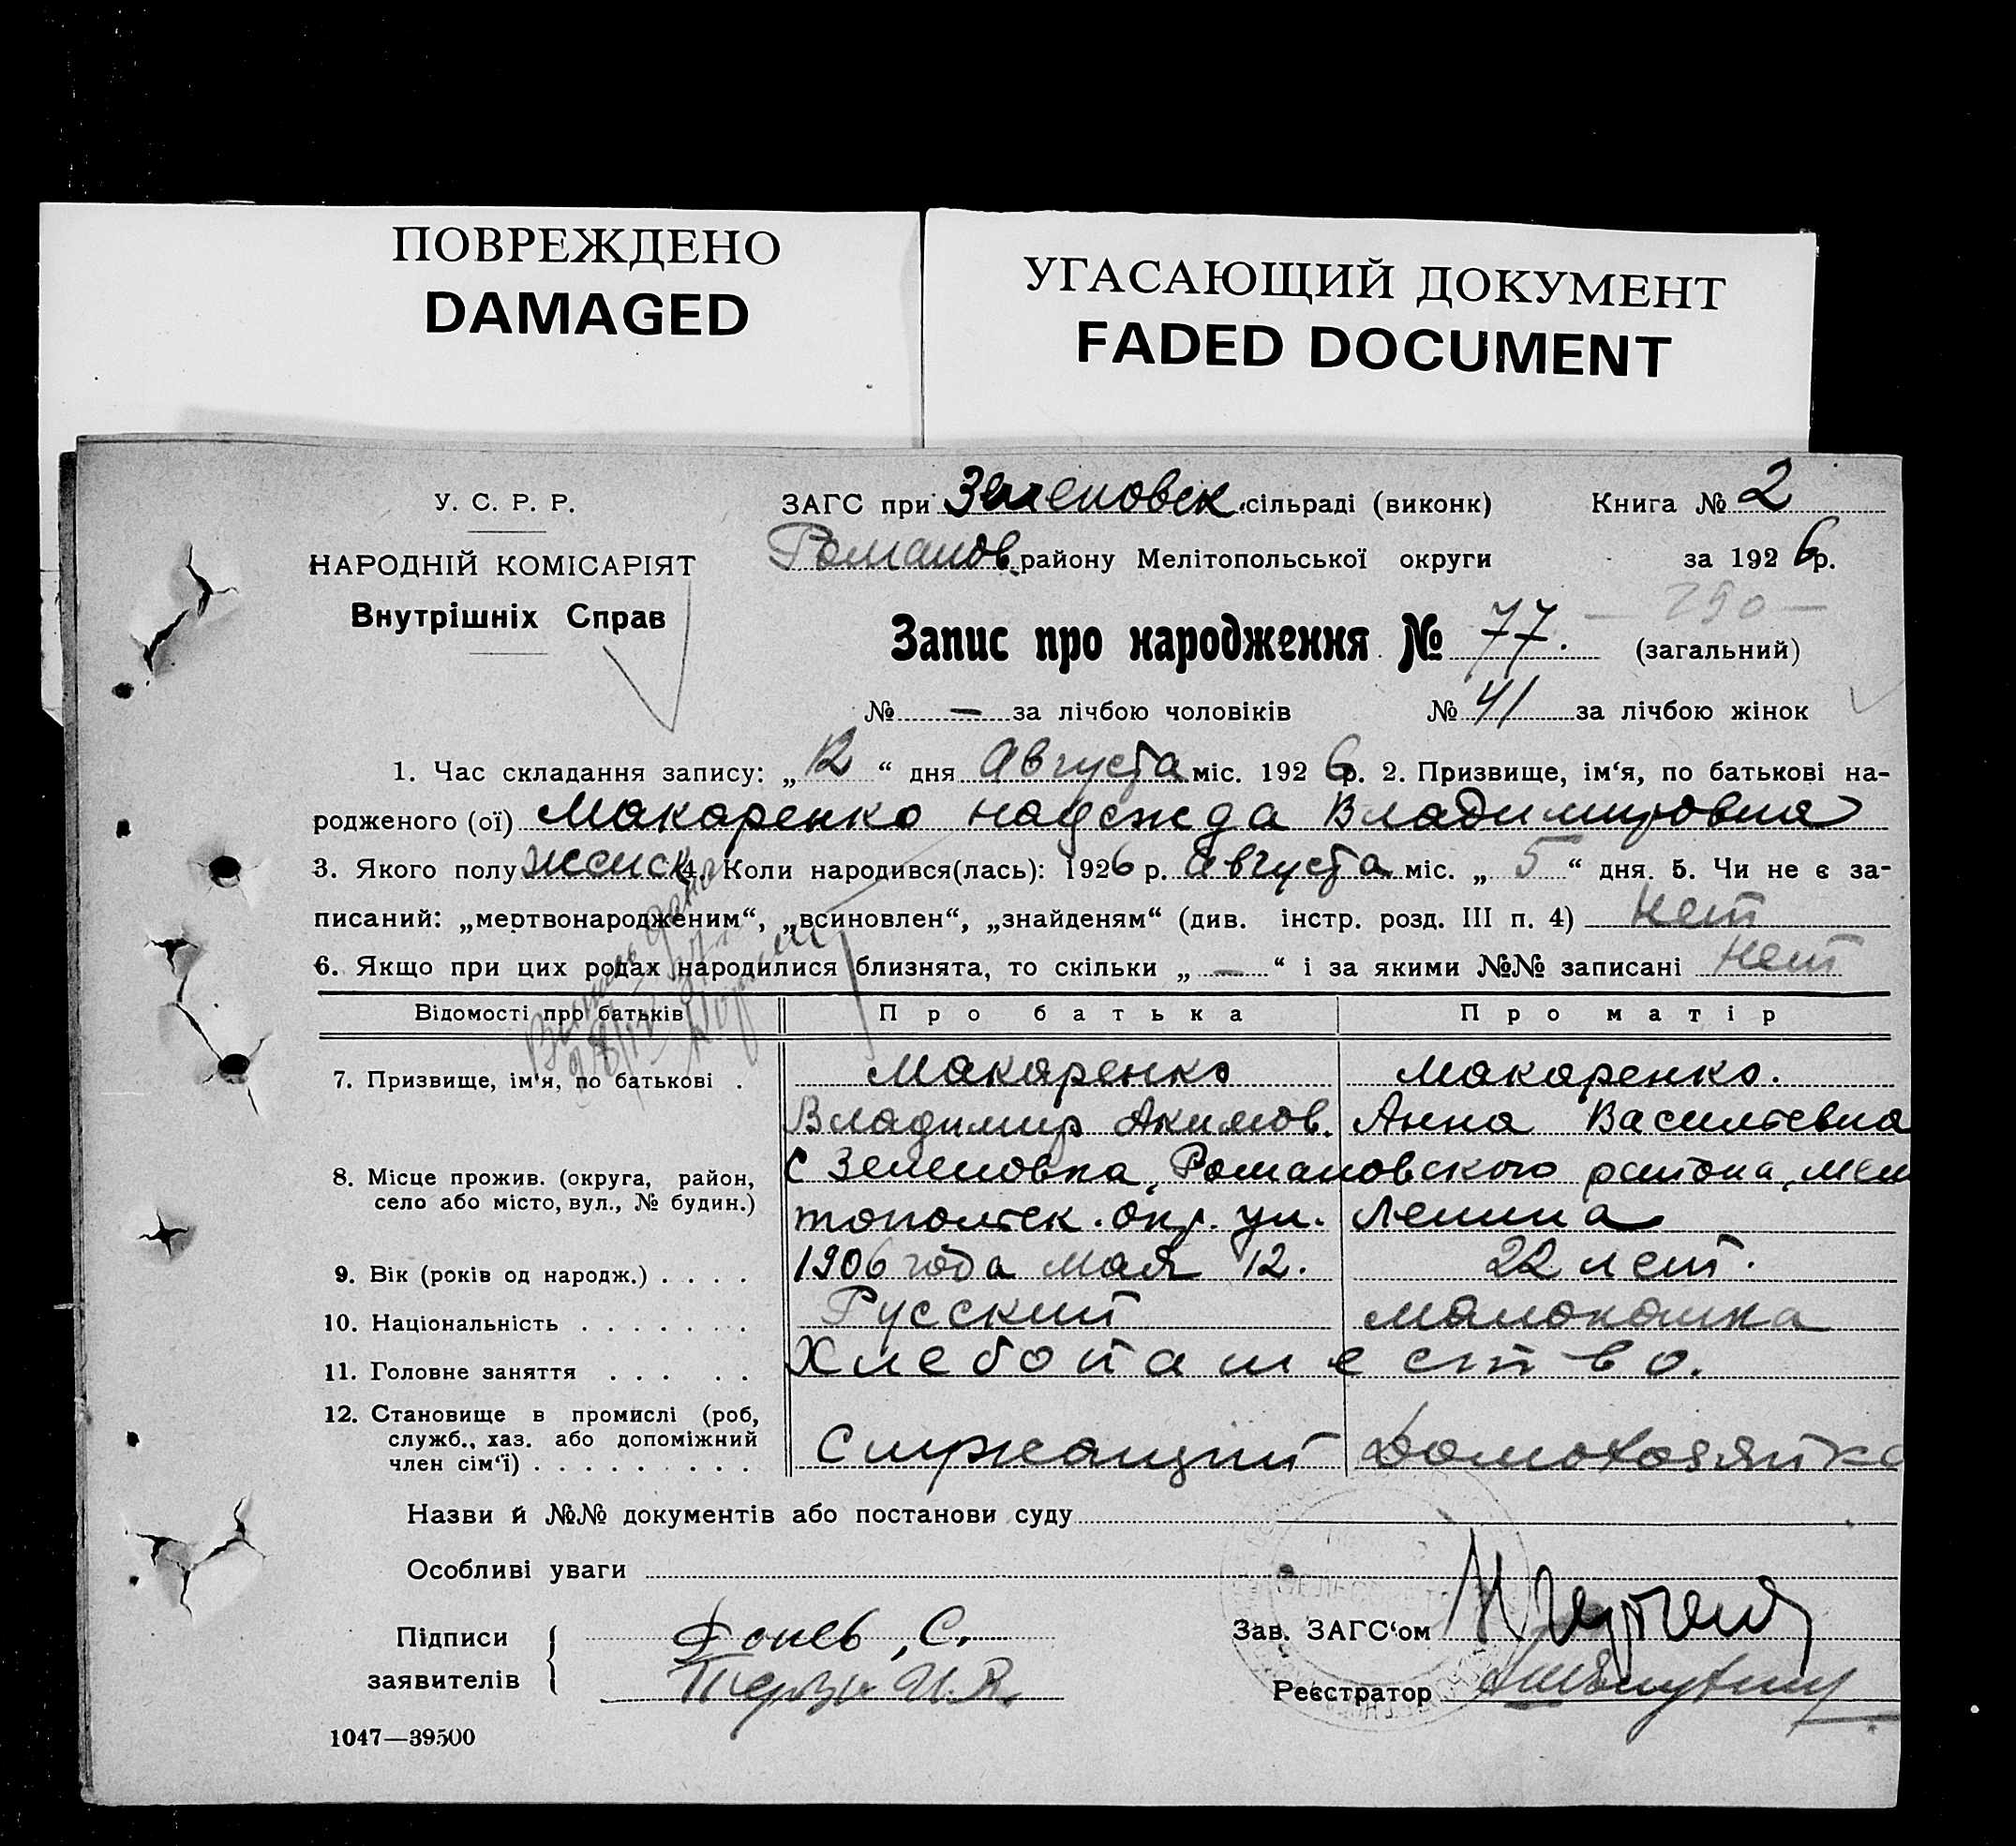 ПОВРЕЖДЕНО
DAMAGED
УГАСАЮЩИЙ ДОКУМЕНТ
FADED DOCUMENT
У. С. Р. Р.
НАРОДНІЙ КОМІСАРІЯТ
Внутрішніх Справ
ЗАГС при Зеленовск сільраді (виконк) Книга № 2
Романов. району Мелітопольської округи за 1926 р.
Запис про народження № 77. (загальний)
— 290 —
№ — за лічбою чоловіків № 41 за лічбою жінок
1. Час складання запису: „12“ дня Августа міс. 1926 р. 2. Призвище, ім‘я, по батькові на-
родженого (ої) Макаренко Надежда Владимировна
3. Якого полу женск 4. Коли народився(лась): 1926 р. Августа міс. „5“ дня. 5. Чи не є за-
писаний: „мертвонародженим“, „всиновлен“, „знайденям“ (див. інстр. розд. III п. 4) Нет
6. Якщо при цих родах народилися близнята, то скільки „—“ і за якими №№ записані нет
Відомості про батьків Про батька Про матір
7. Призвище, ім‘я, по батькові . Макаренко Макаренко.
Владимир Акимов. Анна Васильевна
8. Місце прожив. (округа, район,
село або місто, вул., № будин.)
с Зеленовка, Романовского района, Мели
топольск. окр. ул. Ленина
9. Вік (років од народж.) . . . . 1906 года мая 12. 22 лет.
10. Національність . . . . . . . Русский малоко
11. Головне заняття . . . . . Хлебопашество.
12. Становище в промислі (роб,
служб., хаз. або допоміжний
член сім‘ї) . . . . . . . . . Служащий Домохозяйка
Назви й №№ документів або постанови суду
Особливі уваги
Підписи
заявителів
С.
Зав. ЗАГС‘ом
Реєстратор
1047—39500